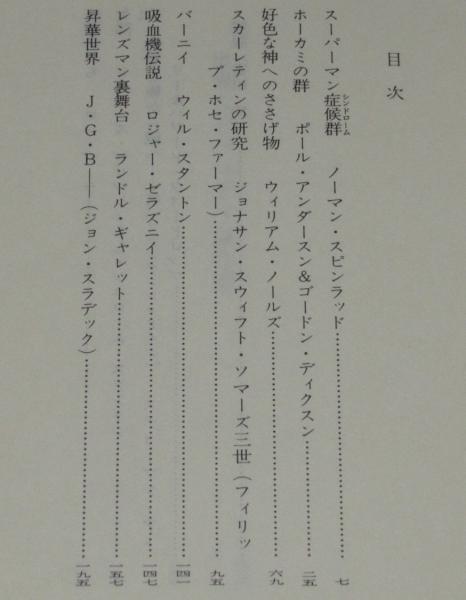 目次
スーパーマン症候群シンドローム　ノーマン・スピンラッド……………………七
ホーカミの群　ポール・アンダースン&ゴードン・ディクスン……………………二五
好色な神へのささげ物　ウィリアム・ノールズ……………………六九
スカーレティンの研究　ジョナサン・スウィフト・ソマーズ三世（フィリッ
プ・ホセ・ファーマー）……………………九五
バーニイ　ウィル・スタントン……………………一四一
吸血機伝説　ロジャー・ゼラズニイ……………………一四七
レンズマン裏舞台　ランドル・ギャレット……………………一五七
昇華世界　J・G・B――（ジョン・スラデック）……………………一九五